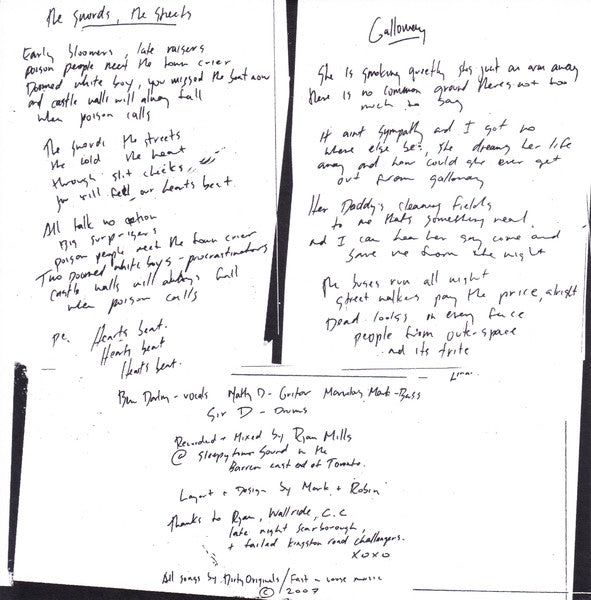 The Swords, The Streets
Early bloomers, late raisers
poison people meet the town crier
Doomed white boy, you missed the boat now
and castle walls will always fall
when poison calls
The swords the streets
the cold the heat
through slit cheeks
you will feel our hearts beat.
All talk no option
Big surprisers
poison people meet the town crier
Two Doomed white boys - procrastinators
castle walls will always fall
when poison calls
Hearts beat.
Hearts beat
Hearts beat.
Galloway
She is smoking quietly shes just an arm away
there is no common ground theres not too
much to say
It aint sympathy and I got no
where else to be. she dreams her life
away and how could she ever get
out from galloway
Her Daddy's cleaning fields
to me thats something neat.
and I can hear her say come and
save me from the night
The buses run all night
street walkers pay the price, alright
Dead looks on every face
people from outer-space
and its trite
Ben - vocals Matty D - Guitar Mark - Bass
Sir D - Drums
Recorded + Mixed by Ryan Mills
@ Sleepytown Sound in the
Barren east end of Toronto.
Layout + Design by Mark + Robin
Thanks to Ryan, Wallride, C.C
late night scarborough,
+ failed kingston road challengers.
xoxo
All songs by Dirty Originals / Fast n loose music
© 2007